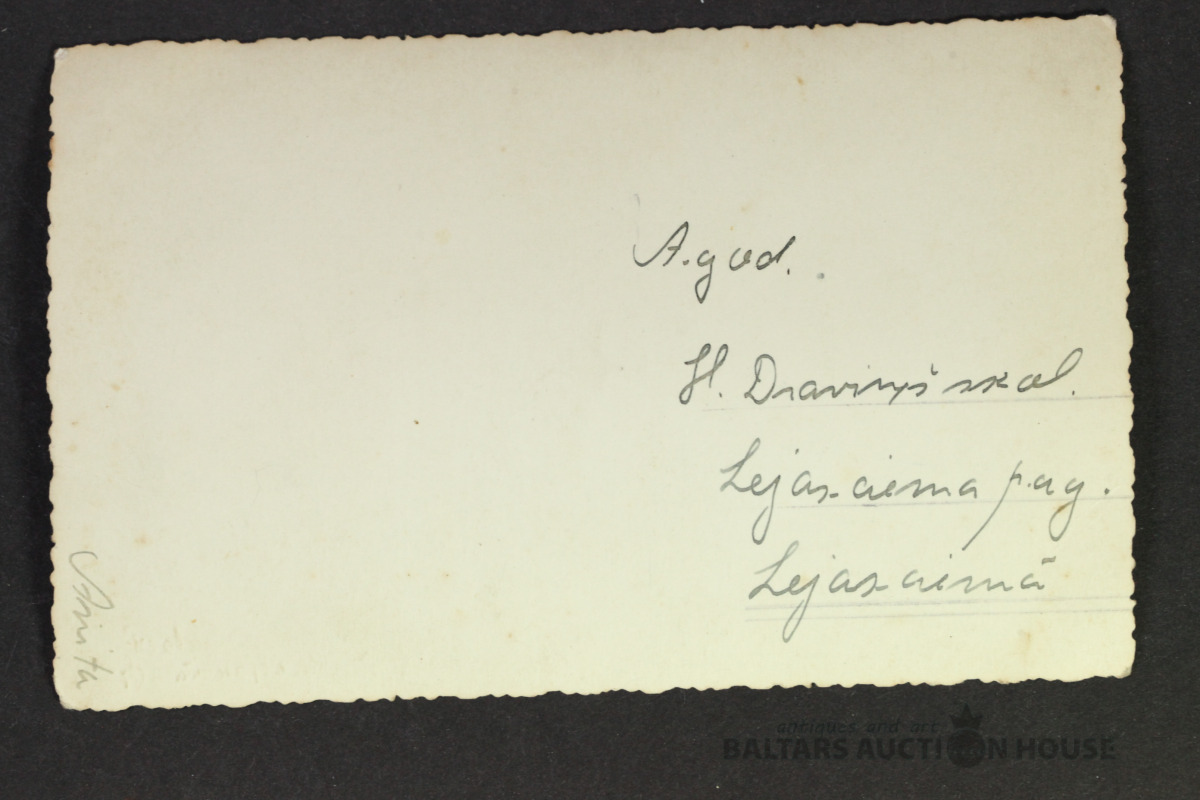 A. god.
H. Draviņš skol.
Lejasciema pag.
Lejasciemā
Anita
antiques and art
BALTARS AUCTION HOUSE